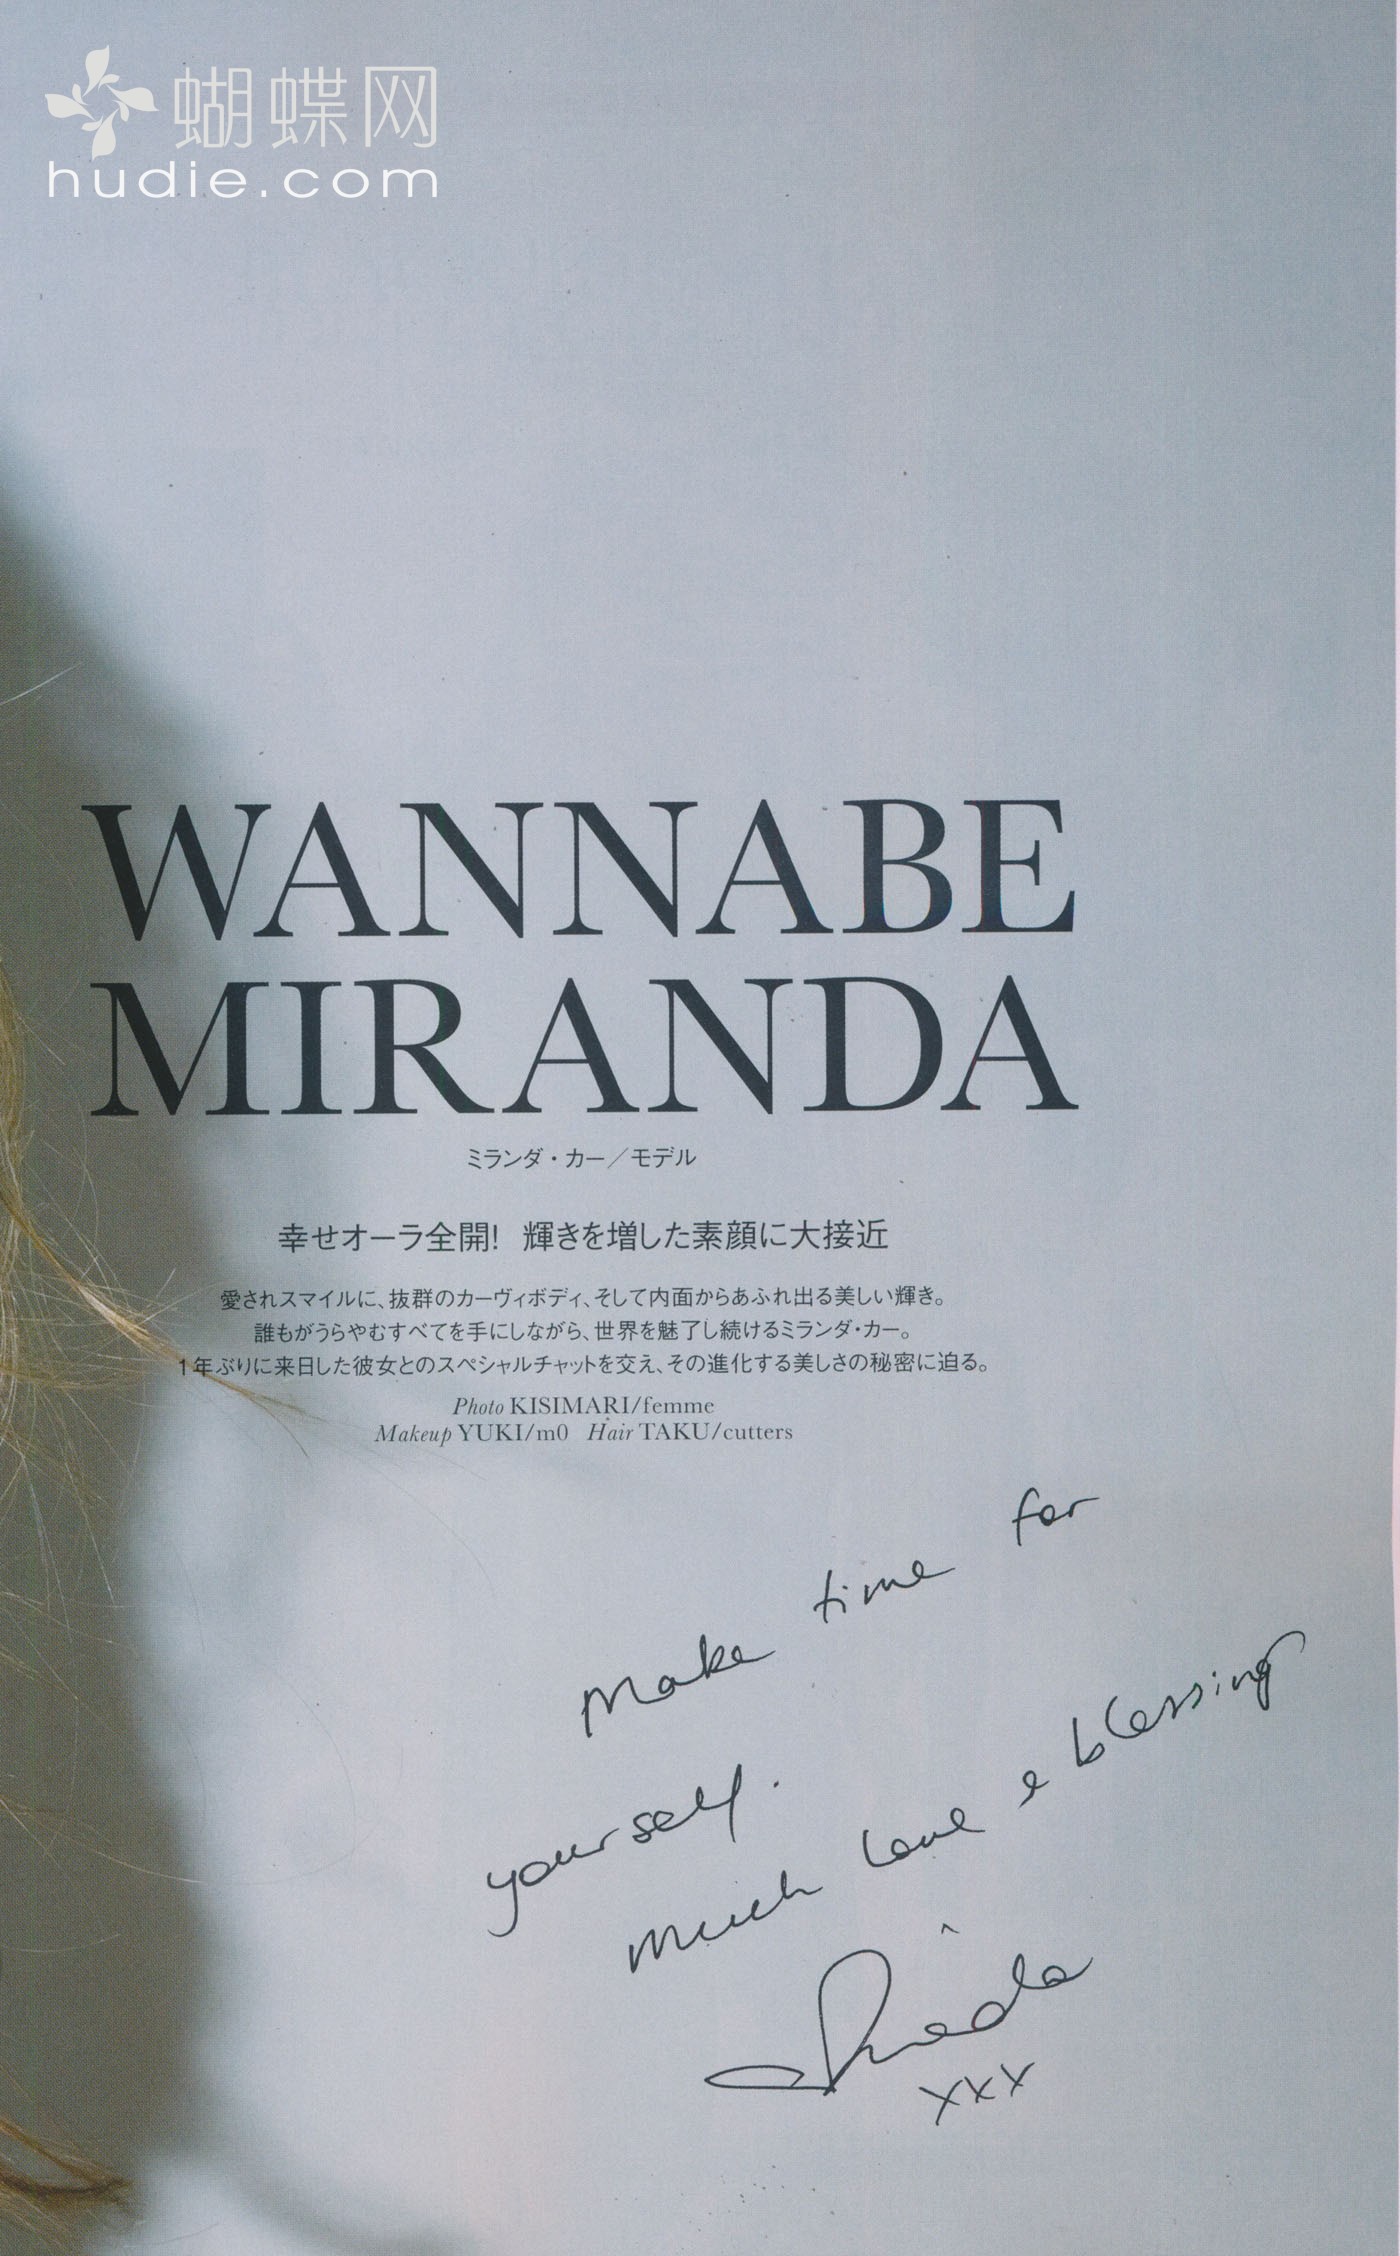 蝴蝶网
hudie.com
WANNABE
MIRANDA
ミランダ・カー／モデル
幸せオーラ全開！ 輝きを増した素顔に大接近
愛されスマイルに、抜群のカーヴィボディ、そして内面からあふれ出る美しい輝き。
誰もがうらやむすべてを手にしながら、世界を魅了し続けるミランダ・カー。
1年ぶりに来日した彼女とのスペシャルチャットを交え、その進化する美しさの秘密に迫る。
Photo KISIMARI/femme
Makeup YUKI/m0 Hair TAKU/cutters
Make time for
yourself.
Much love & blessing
xxx